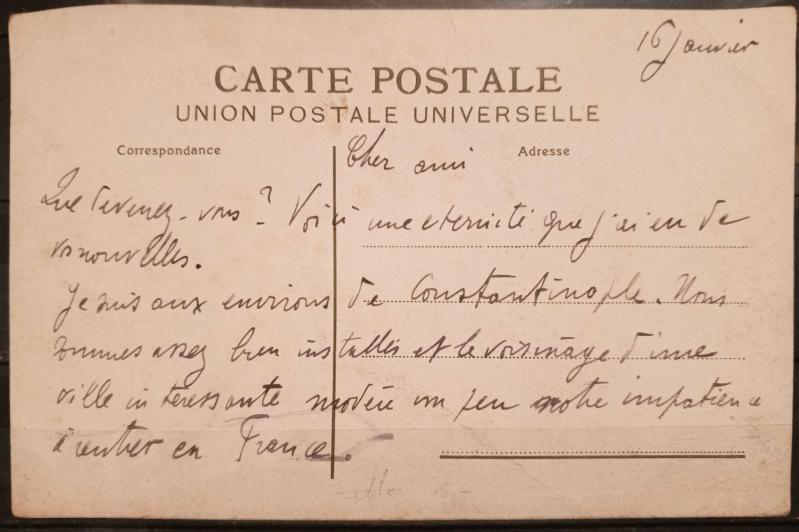 16 Janvier
CARTE POSTALE
UNION POSTALE UNIVERSELLE
Correspondance
Adresse
Cher ami
Que devenez-vous? Voici une eternité que j'ai eu de
vs nouvelles.
Je suis aux environs de Constantinople. Nous
sommes assez bien installés et le voisinage d'une
ville interessante modère un peu notre impatience
à rentrer en France.